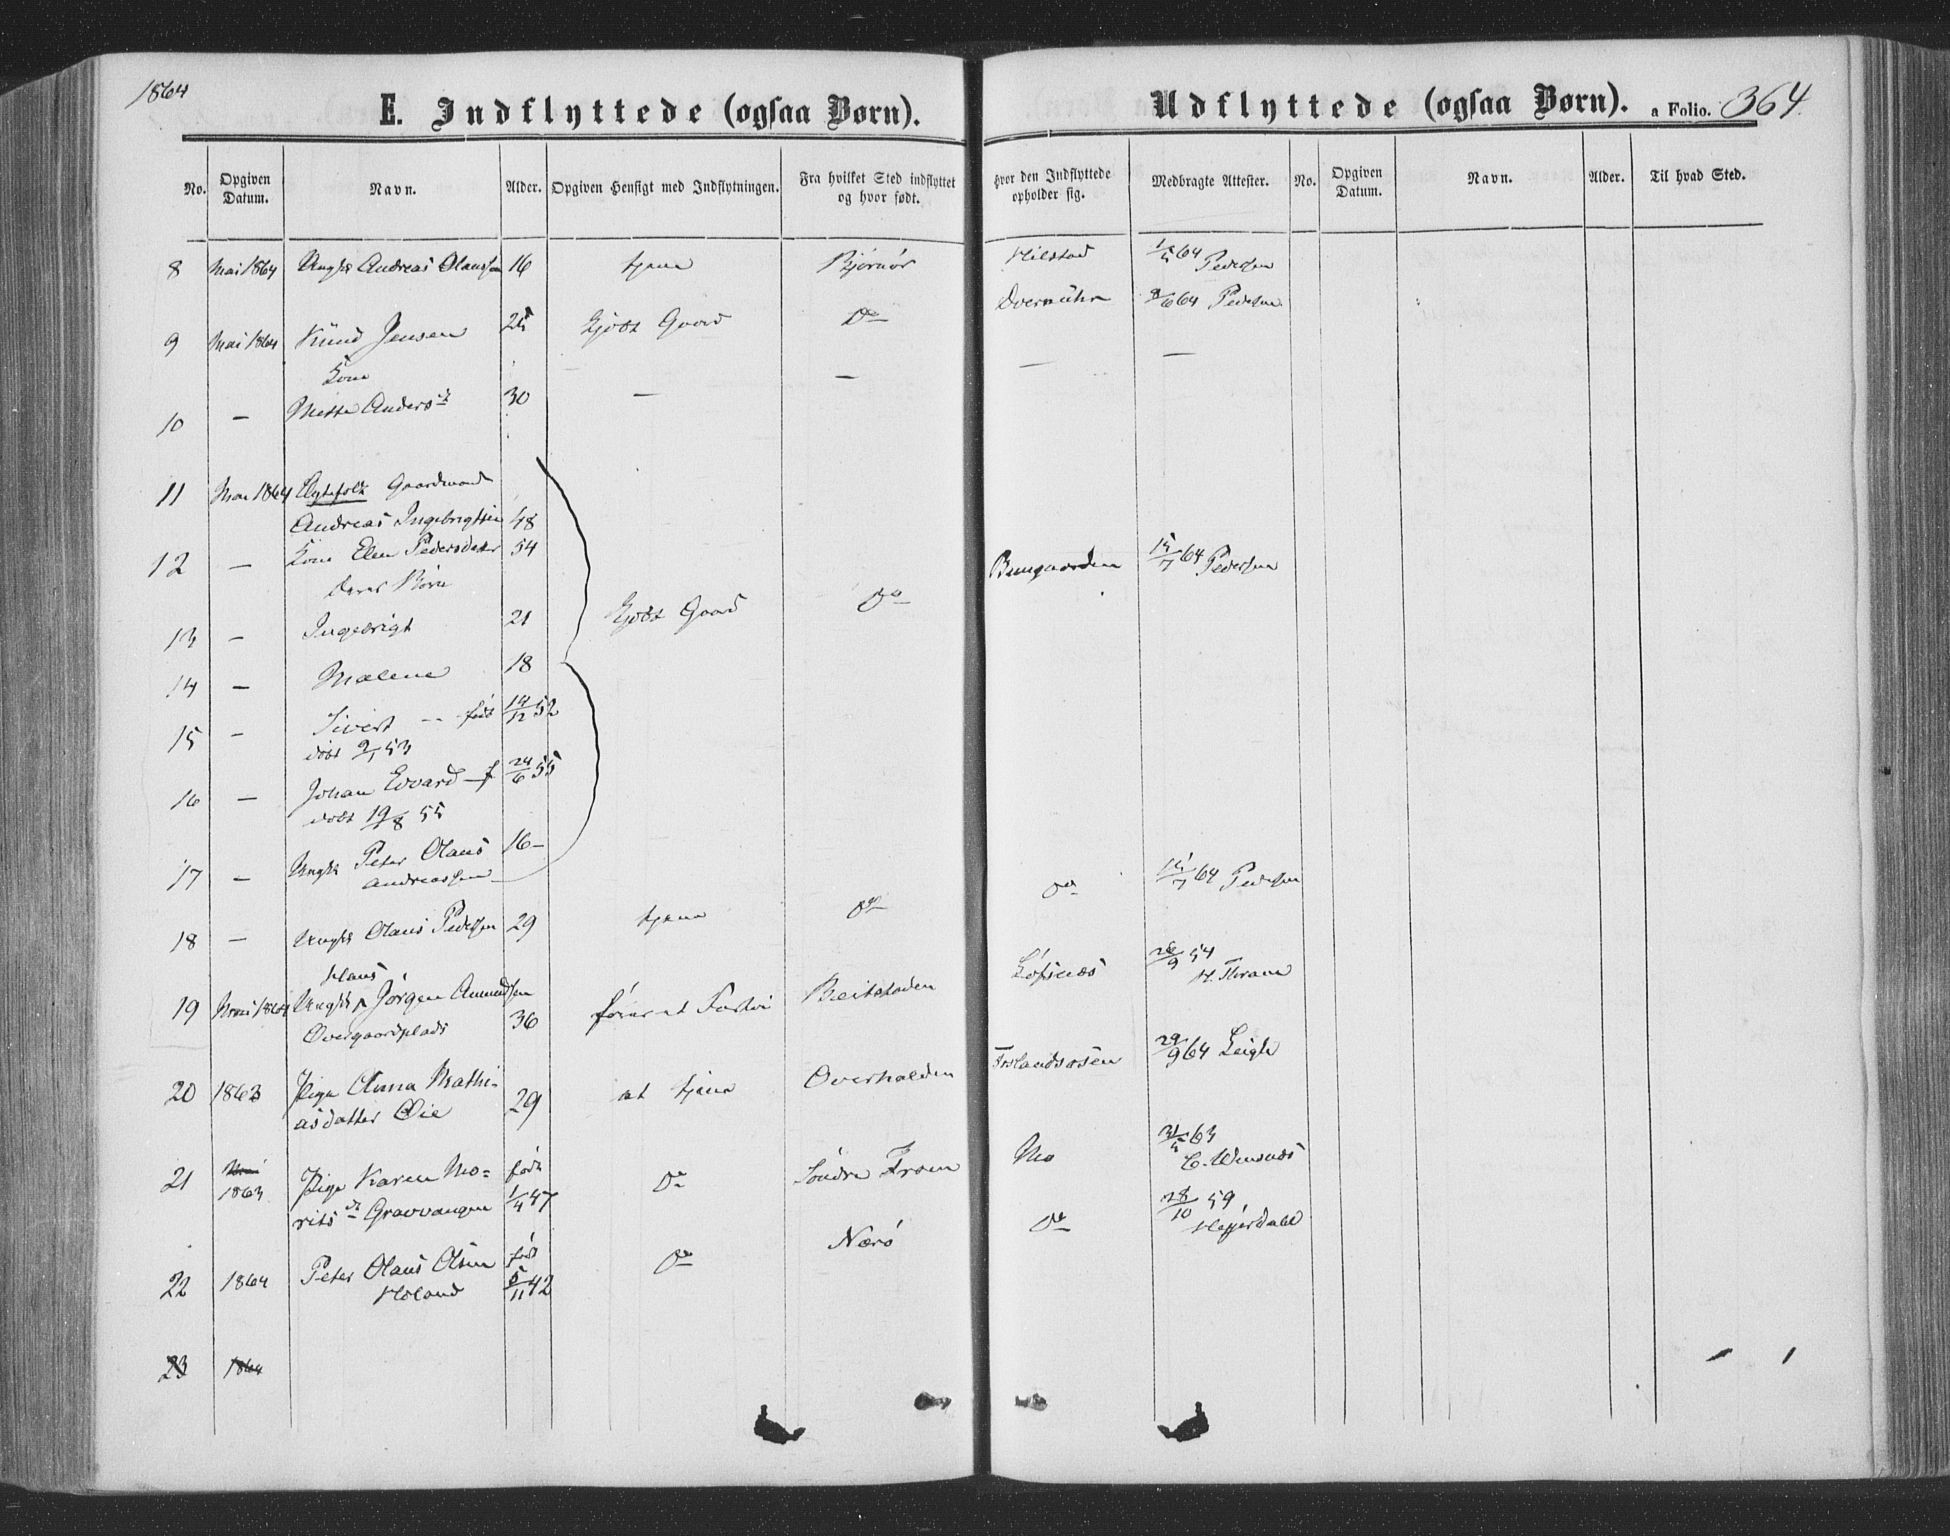 1864
E. Indflyttede (ogsaa Børn).
Udflyttede (ogsaa Børn). a Folio. 364.
No. Opgiven Datum. Navn. Alder. Opgiven Hensigt med Indflytningen. Fra hvilket Sted indflyttet og hvor født. hvor den Indflyttede opholder sig. Medbragte Attester. No. Opgiven Datum. Navn. Alder. Til hvad Sted.
8 Mai 1864 Ungk Andreas Olaussen 16 tjene Bjørnør Hilstad 1/5 64 Pedersen
9 Mai 1864 Knud Jensen 25 Kjøbt Gaard Do 64 Pedersen
Kone
10 — Mette Andersd 30 — — — —
11 Mai 1864 Ægtefolk Gaardmand
Andreas Ingebrigtsen 48
12 — Kone Elen Pedersdatter 54 15/7 64 Pedersen
deres Børn
13 — Ingebrigt 21 Kjøbt Gaard Do
14 — Malene 18
15 — Sivert -- født 14/12 52
døbt 9/1 53
16 — Johan Edvard — f 24/6 55
døbt 19/8 55
17 — Ungk Peter Olaus 16 —
Andreassen
18 — Ungk Olaus Pedersen 29 tjene Do Do 15/7 64 Pedersen
Hans
19 Mai 1864 Ungk ^ Jørgen Amundsen 36 Beitstaden 26/9 54
Overgaardplads H. Thrane
20 1863 Pige Anna Mathi-
asdatter Øie 29 at tjene Overhalden 29/9 64
21 Mai
1863 Pige Karen Mo=
rits d Gravvangen født
1/4 47 Do Søndre Mo 31/5 63
22 1864 Peter Olaus Olsen
Høland født
5/11 42 Do Nærø Do 28/10 59
Hejerdahl
23 1864